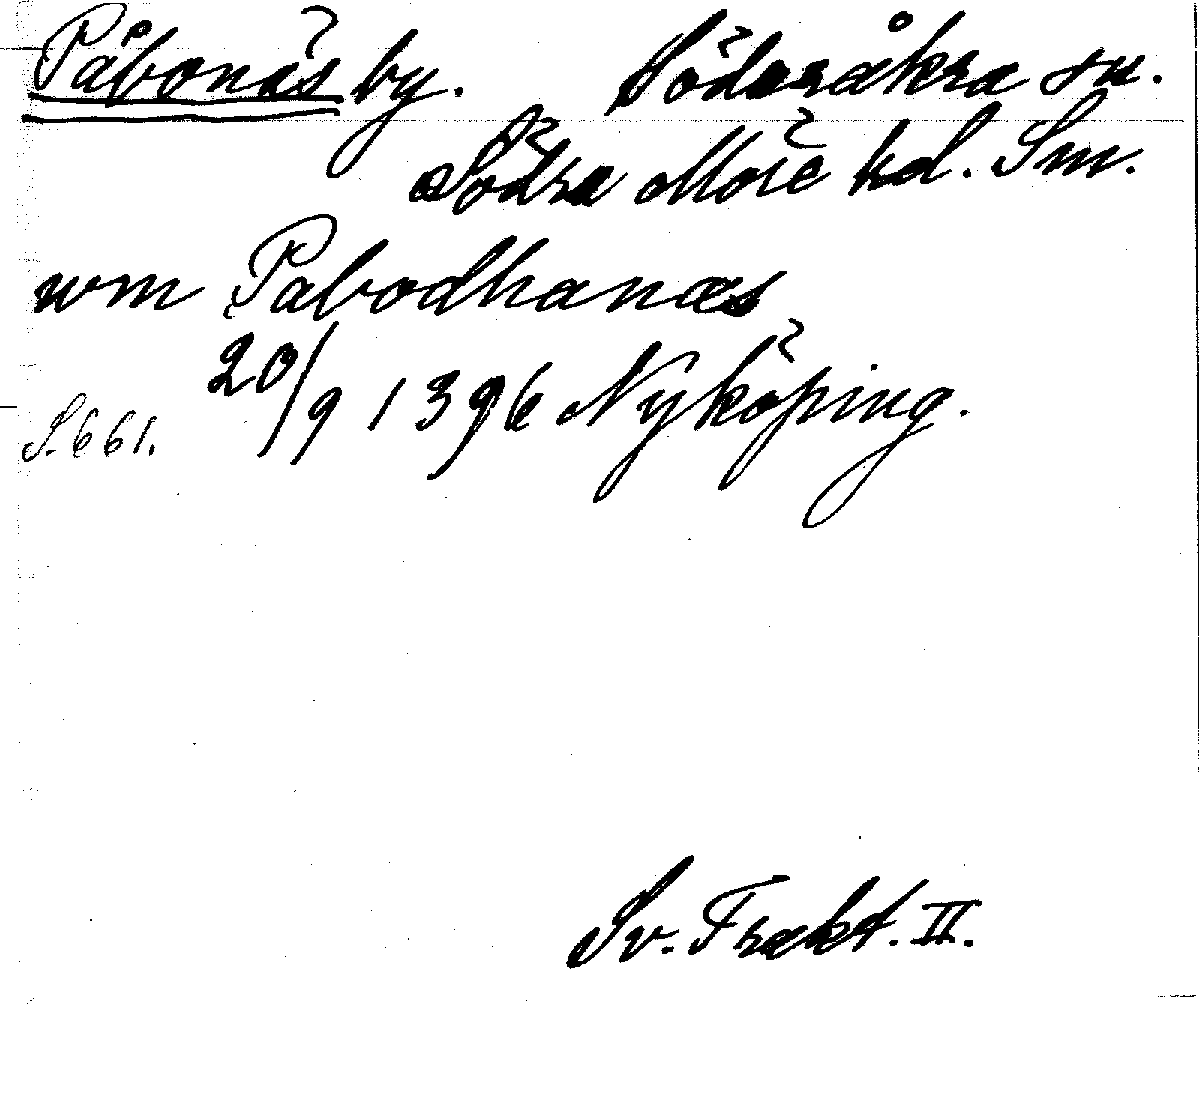 Påbonäs by. Söderåkra sn.
Södra Möre hd. Sm.
wm Pabodhanæs
20/9 1396 Nyköping.
S. 661.
Sv. Trakt. II.